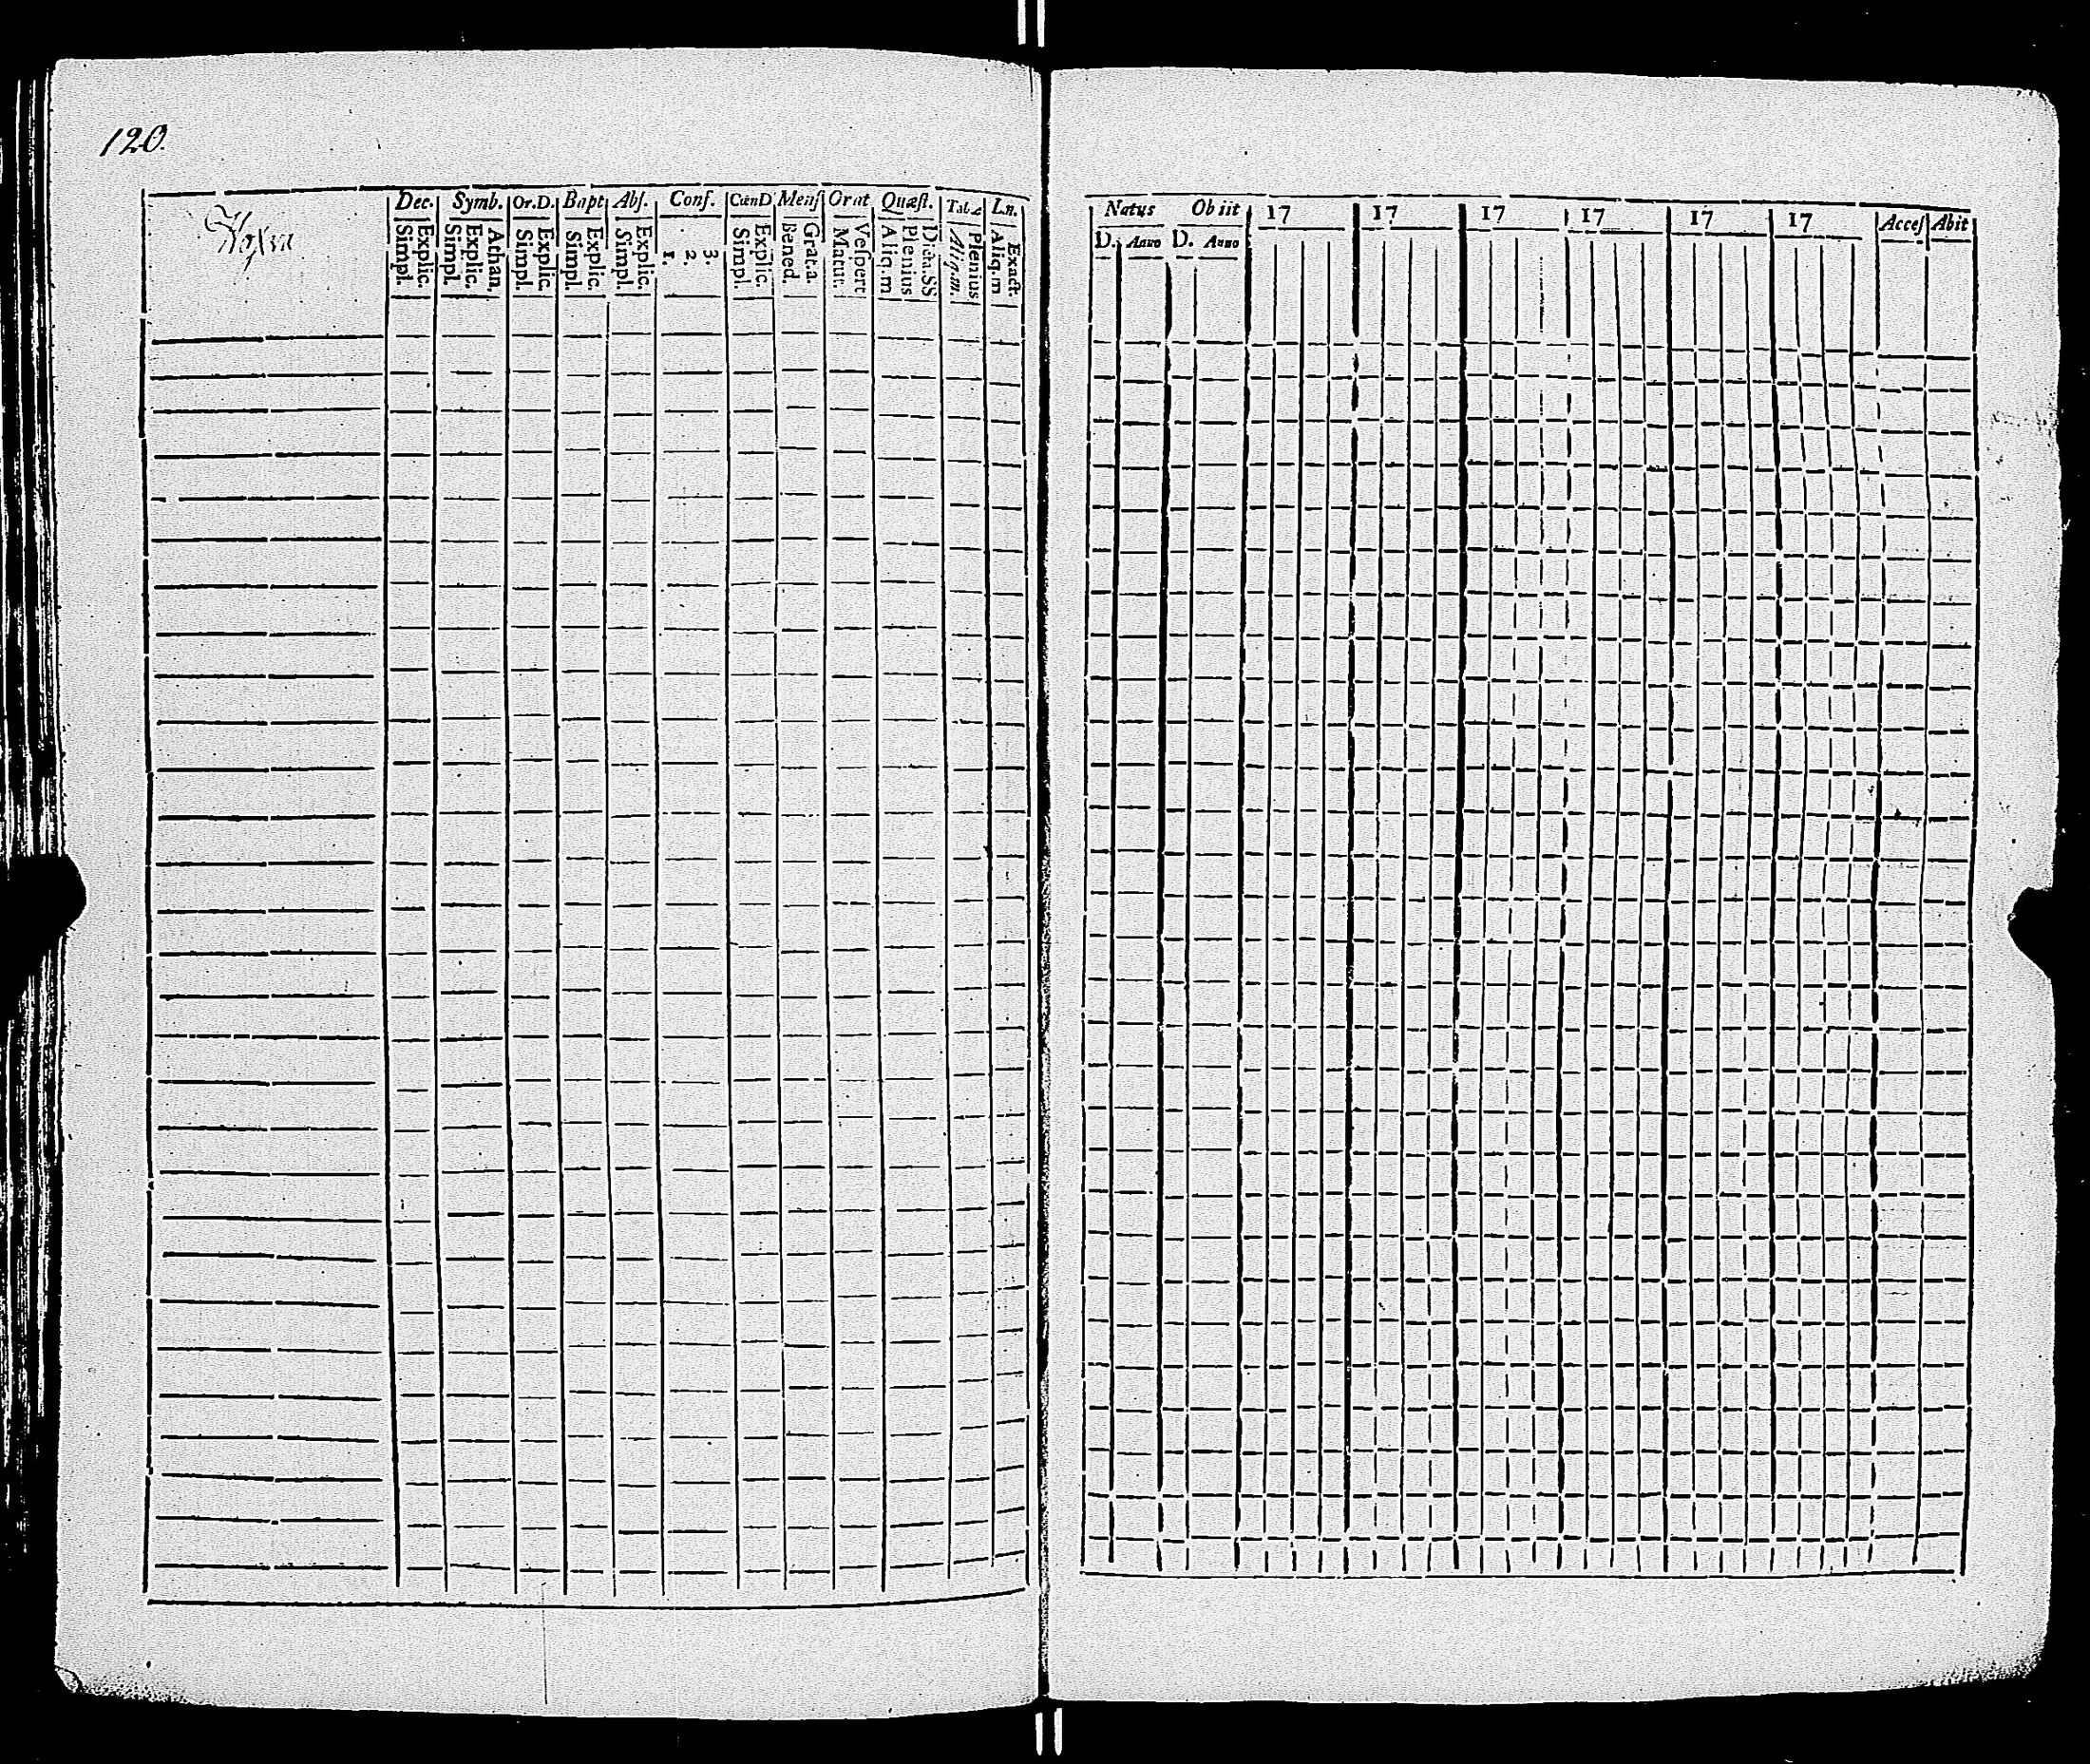 120.
Dec. Symb. Or.D. Bapt Abſ. Conf. CœnD Menſ Orat Quæſt. Tab.œ Ln.
Explic. Simpl.
Athan. Explic. Simpl.
Explic. Simpl.
Explic. Simpl.
Explic. Simpl.
3. 2. 1.
Explic. Simpl.
Grat.a. Bened.
Veſpert Matut.
Dicta.SS Plenius Aliq.m
Plenius Aliq.m.
Exact. Aliq.m
Natus Obiit 17 17 17 17 17 17 Acceſ Abit
D. Anno D. Anno